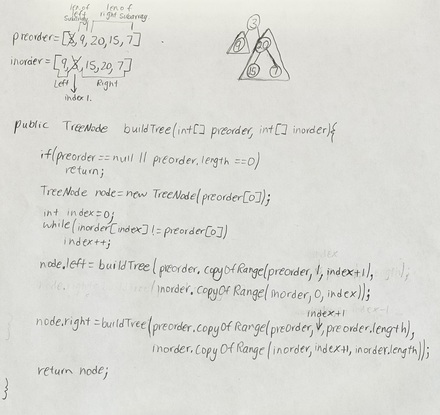 len of left Subarray
len of right Subarray
preorder=[3, 9, 20, 15, 7]
3
9
20
15
7
inorder=[9, 3, 15, 20, 7]
Left
Right
index 1.
public TreeNode buildTree(int[] preorder, int[] inorder){
if(preorder==null || preorder.length ==0)
return;
TreeNode node=new TreeNode(preorder[0]);
int index=0;
while(inorder[index]!=preorder[0])
index++;
node.left=buildTree(preorder.copyOfRange(preorder, 1, index+1),
inorder.copyOfRange(inorder, 0, index));
index+1
node.right=buildTree(preorder.copyOfRange(preorder, preorder.length),
inorder.copyOfRange(inorder, index+1, inorder.length));
return node;
}